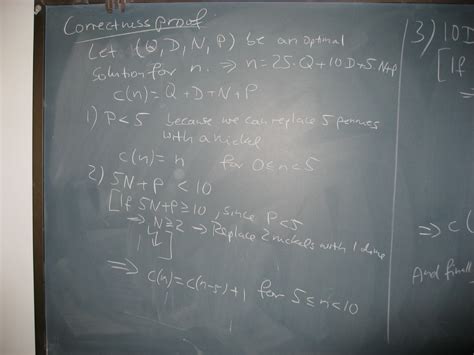 Correctness proof
Let (Q, D, N, P) be an optimal
solution for n. ⇒ n=25·Q+10D+5N+P
c(n) = Q + D + N + P
1) P < 5 because we can replace 5 pennies
with a nickel
c(n) = n for 0 ≤ n < 5
2) 5N + P < 10
[If 5N+P ≥ 10, since P < 5
⇒ N ≥ 2 → Replace 2 nickels with 1 dime
⇓ ]
⇒ c(n) = c(n-5) + 1 for 5 ≤ n < 10
3) 10D
[If
⇒ c(
And finall